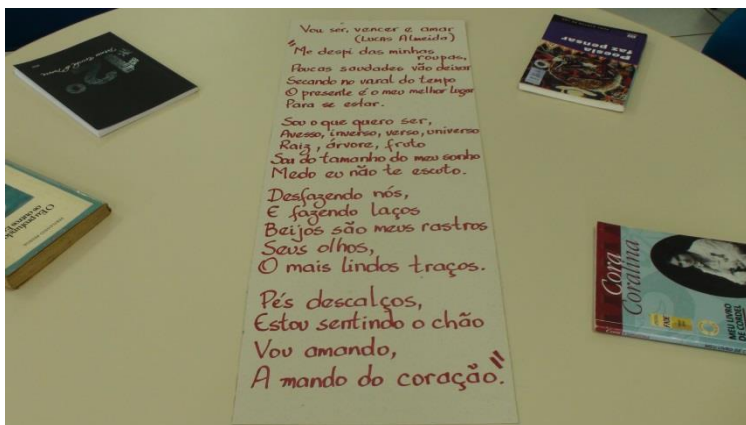 Vou ser, vencer e amar
(Lucas Almeida)
"Me despi das minhas
roupas,
Poucas saudades vão deixar
Secando no varal do tempo
O presente é o meu melhor lugar
Para se estar.
Sou o que quero ser,
Avesso, inverso, verso, universo
Raiz, árvore, fruto
Sou do tamanho do meu sonho
Medo eu não te escuto.
Desfazendo nós,
E fazendo laços
Beijos são meus rastros
Seus olhos,
O mais lindos traços.
Pés descalços,
Estou sentindo o chão
Vou amando,
A mando do coração."
Poesia
faz pensar
Cora
Coralina
MEU LIVRO
DE CORDEL